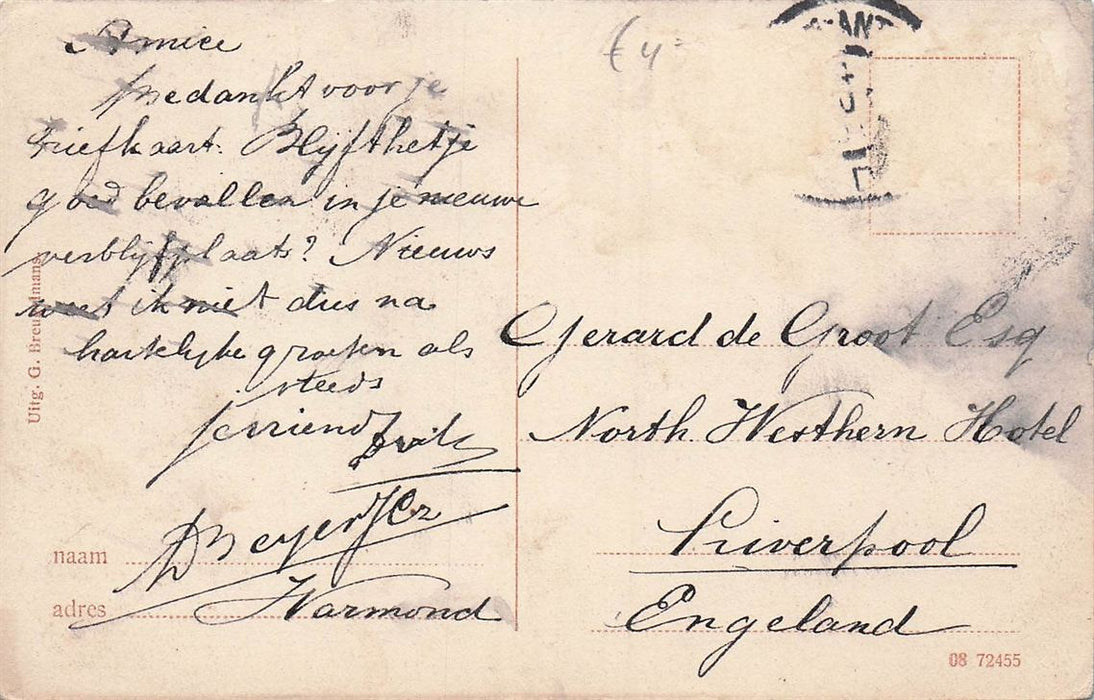 Amice
Bedankt voor je
briefkaart. Blyft het je
goed bevallen in je nieuwe
verblyfplaats? Nieuws
weet ik niet dus na
hartelyke groeten als
steeds
je vriend
Warmond
naam
adres
Uitg. G. Breukelmans.
€ 4
Gerard de Groot Esq
North Westhern Hotel
Liverpool
Engeland
08 72455